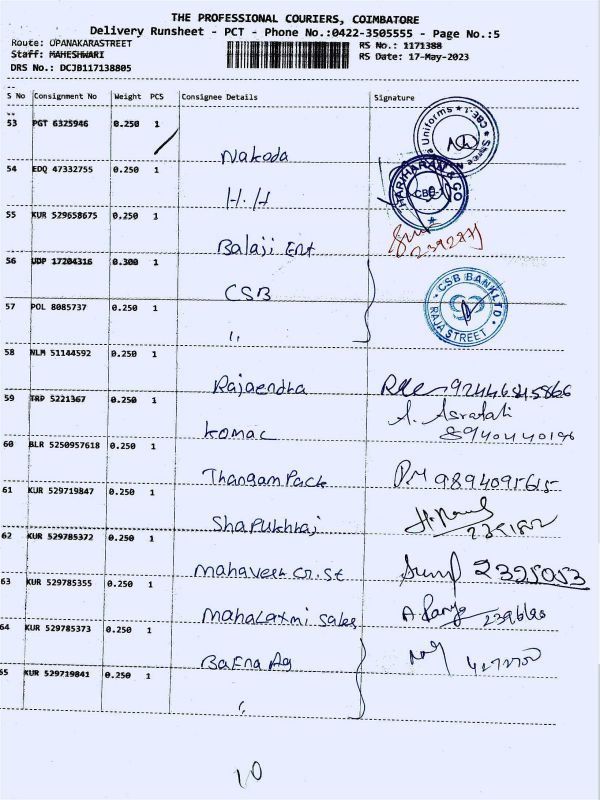 THE PROFESSIONAL COURIERS, COIMBATORE
Delivery Runsheet - PCT - Phone No.:0422-3505555 - Page No.:5
Route: OPANAKARASTREET RS No.: 1171388
Staff: MAHESHWARI RS Date: 17-May-2023
DRS No.: DCJB117138805
S No Consignment No Weight PCS Consignee Details Signature
53 PGT 6325946 0.250 1 Nakoda
Uniforms * CBE-1 * Shree
54 EDQ 47332755 0.250 1 H.H
HARIHARAN & CO
CBE-1
55 KUR 529658675 0.250 1 Balaji Ent
56 UDP 17204316 0.300 1 CSB
CSB BANK LTD
RAJA STREET
57 POL 8085737 0.250 1 ,,
58 NLM 51144592 0.250 1 Rajaendha
59 TRP 5221367 0.250 1 Komac A. Asrafali
8940440196
60 BLR 5250957618 0.250 1 Thangam Pack 9894091615
61 KUR 529719847 0.250 1
62 KUR 529785372 0.250 1 Mahaveer Cr. St 2325053
63 KUR 529785355 0.250 1 Mahalaxmi Sales
64 KUR 529785373 0.250 1 Bafna Ag
65 KUR 529719841 0.250 1 ,,
10